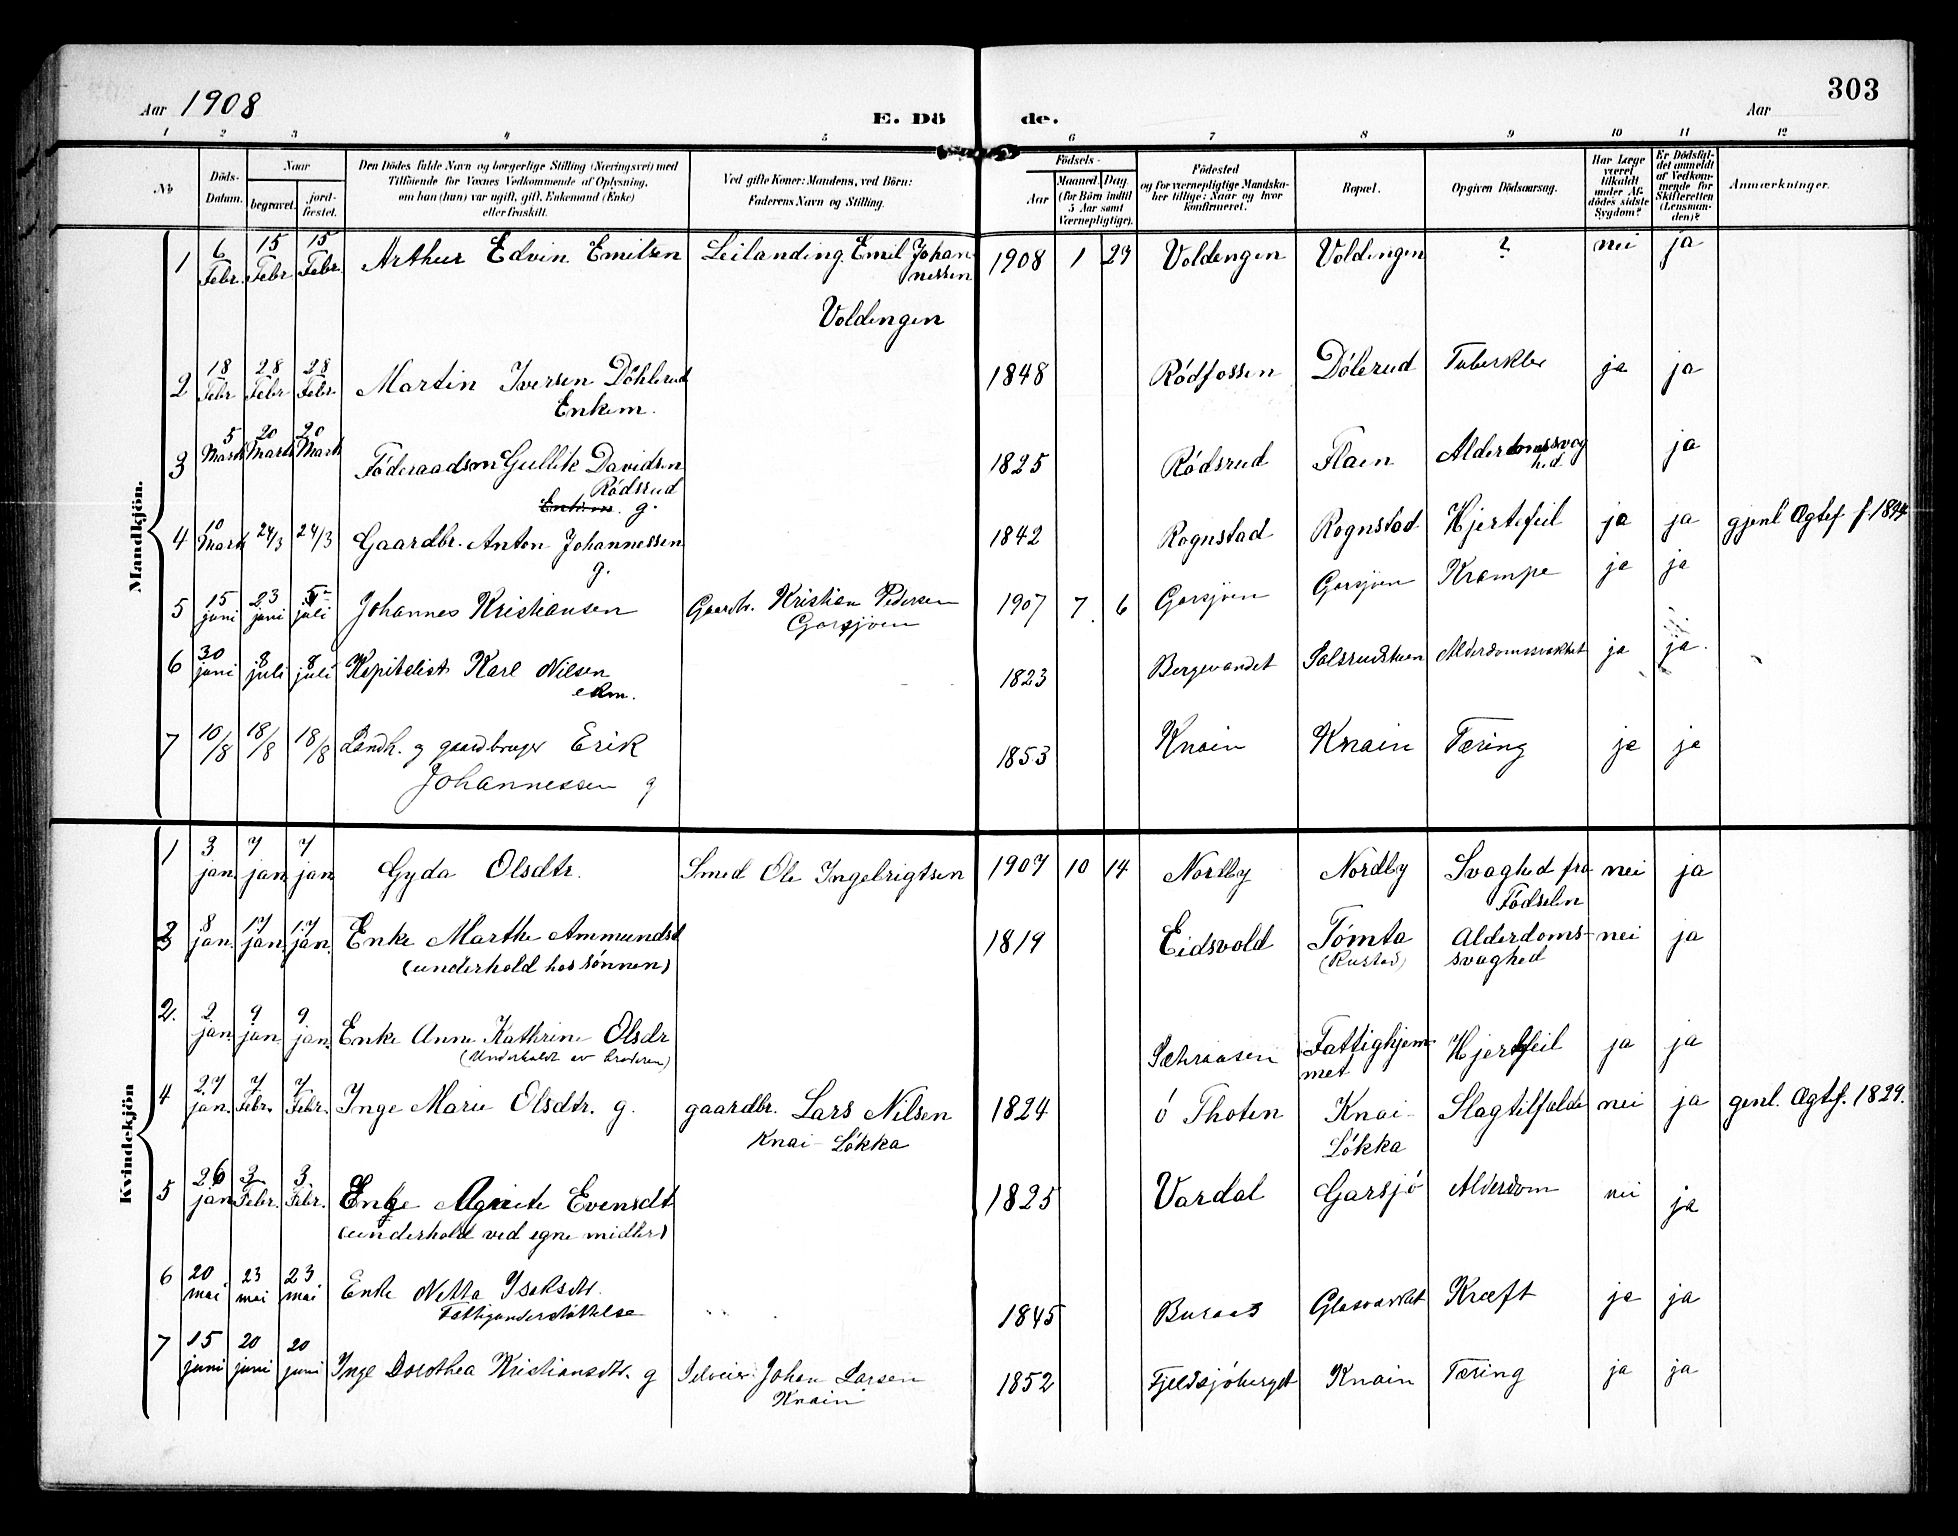 303
Aar 1908
E. Dö de.
Aar
1 2 3 4 5 6 7 8 9 10 11 12
No
Döds-Datum.
Naar
begravet.
jord-fæstet.
Den Dödes fulde Navn og borgerlige Stilling (Næringsvei) med
Tilföiende for Voxnes Vedkommende af Oplysning,
om han (hun) var ugift, gift, Enkemand (Enke)
eller fraskilt.
Ved gifte Koner: Mandens, ved Börn:
Faderens Navn og Stilling.
Födsels-
Aar
Maaned. Dag.
(for Börn indtil
5 Aar samt
Værnepligtige).
Födested
og for værnepligtige Mandska-
ber tillige: Naar og hvor
konfirmeret.
Bopæl.
Opgiven Dödsaarsag.
Har Læge
været
tilkaldt
under Af-
dödes sidste
Sygdom?
Er Dödsfal-
det anmeldt
af Vedkom-
mende for
Skifteretten
(Lensman-
den)?
Anmærkninger.
Mandkjön.
1 6 Febr. 15 Febr 15 Febr. Arthur Edvin Emilsen Leilanding. Emil Johan- 1908 1 29 Voldengen Voldengen ? nei ja
nessen
Voldengen
2 18 Febr 28 Febr 28 Febr. Martin Iversen Döhlerud 1848 Rödfossen Dölerud Tuberkler ja ja
Enkem.
3 5 Marts 20 Marts 20 Marts Föderaadsm Gullik Davidsen 1825 Rödsrud Flaen Alderdomssvag ja
hed
Rödsrud
g.
4 10 Marts 24/3 24/3 Gaardbr. Anton Johannessen 1842 Rognstad Rognstad Hjertefeil ja ja gjenl Ægtef f. 1844
g.
5 15 juni 23 juni 5 juli Johannes Kristiansen Gaardb. Kristian Pedersen 1907 7 6 Garsjøen Garsjøen Krampe ja ja
Garsjøen
6 30 juni 8 juli 8 juli Kapitalist Karl Nilsen 1823 Bergevandet Aldersdomssvakhet ja ja.
ekm.
7 10/8 18/8 18/8 Landh. g gaardbruger Erik 1853 Knain Knain Tæring ja ja
Johannessen g
Kvindekjön
1 3 jan. 7 jan 7 jan Gyda Olsdtr. Smed Ole Ingebrigtsen 1907 10 14 Norlby Nordby Svaghed fra nei ja
Födselen
3 8 jan. 17 jan. 17 jan. Enke Marthe Ammundsd 1819 Eidsvold Tömta Alderdoms- nei ja
(underhold hos sönnen) (Rustad) svaghed
2. 2 jan. 9 jan. 9 jan. Enke Anne Kathrine Olsdr Fattighjem- Hjertefeil ja ja
(Underholdt av broderen) met
4 27 jan. 7 Febr. 7 Febr. Inge Marie Olsdtr. g. gaardbr. Lars Nilsen 1824 ö Thoten Knai- Slagtilfælde nei ja genl. Ægtef. 1829.
Knai-Lökka Lökka
5 26 jan 3 Febr. 3. Febr. Enke Agnete Evensdt 1825 Vardal Garsjö Alderdom nei ja
(underhold ved egne midler)
6 20 mai 23 mai 23 mai Enke Netta Isaksdtr. 1845 Buraas Glasværket Kræft ja ja
Fattigunderstöttelse
7 15 juni 20 juni 20 juni Inge Dorothea Kristiansdtr. g Selveier Johan Larsen 1852 Fjeldsjöberget Knain Tæring ja ja
Knain